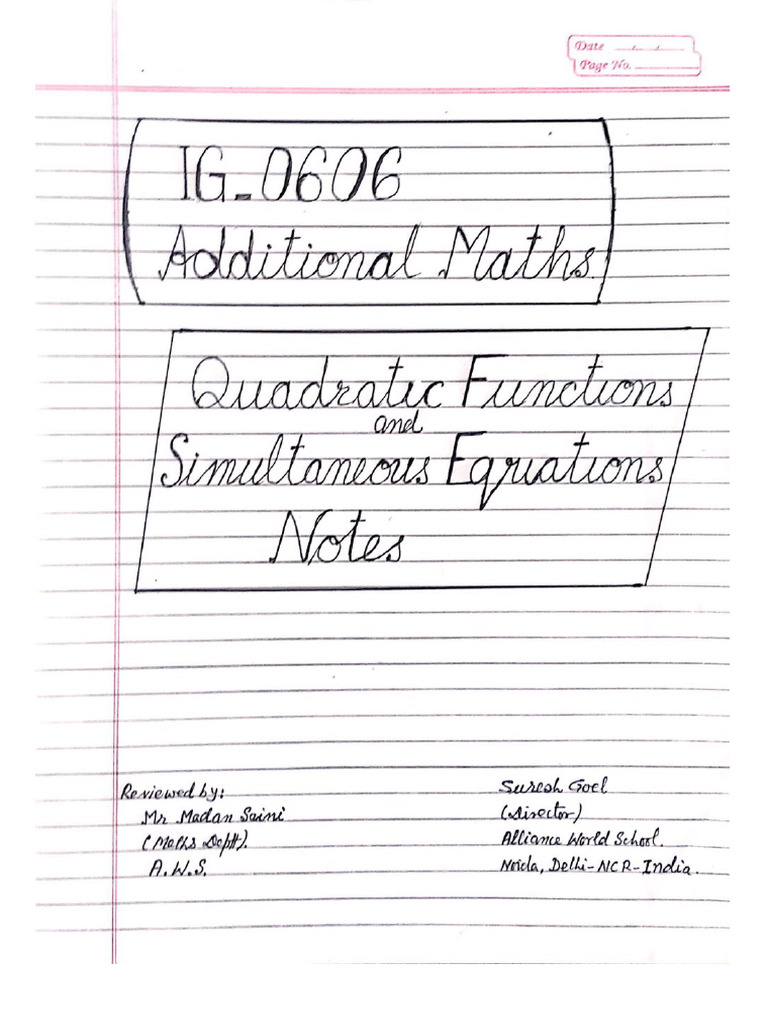 Date __/__/__
Page No. ______
IG-0606
Additional Maths
Quadratic Functions
and
Simultaneous Equations
Notes
Reviewed by:
Mr Madan Saini
(Maths Deptt).
A.W.S.
Suresh Goel
(Director)
Alliance World School.
Noida, Delhi-NCR-India.